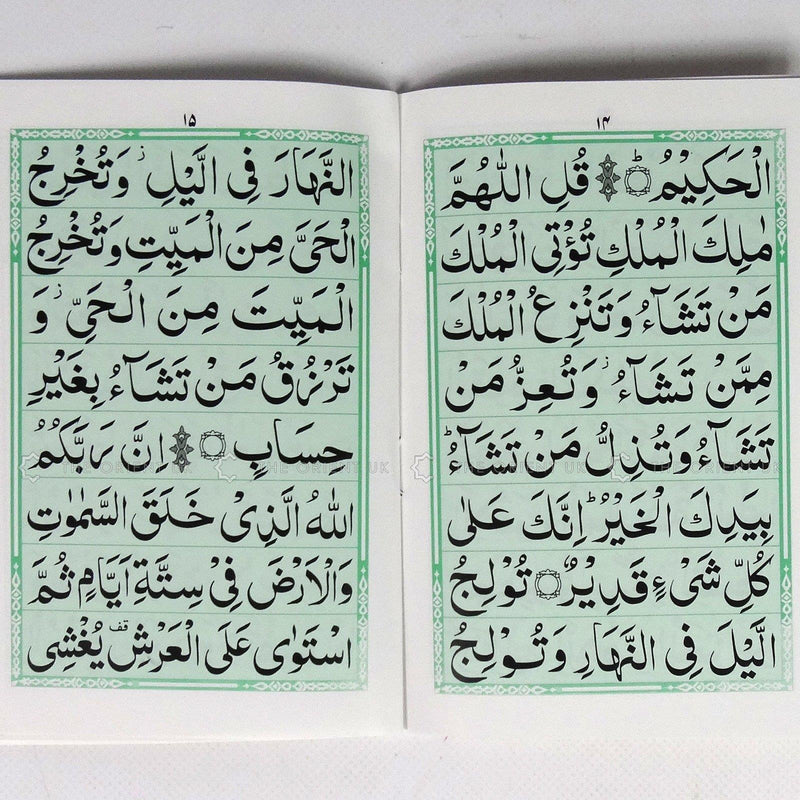 ۱۴
الْحَكِيْمُ ؕ قُلِ اللّٰهُمَّ
مٰلِكَ الْمُلْكِ تُؤْتِی الْمُلْكَ
مَنْ تَشَآءُ وَتَنْزِعُ الْمُلْكَ
مِمَّنْ تَشَآءُ ؗ وَتُعِزُّ مَنْ
تَشَآءُ وَتُذِلُّ مَنْ تَشَآءُ ؕ
بِيَدِكَ الْخَيْرُ ؕ اِنَّكَ عَلٰی
كُلِّ شَیْءٍ قَدِيْرٌ تُوْلِجُ
الَّيْلَ فِی النَّهَارِ وَتُوْلِجُ
۱۵
النَّهَارَ فِی الَّيْلِ ؗ وَتُخْرِجُ
الْحَیَّ مِنَ الْمَيِّتِ وَتُخْرِجُ
الْمَيِّتَ مِنَ الْحَیِّ ؗ وَ
تَرْزُقُ مَنْ تَشَآءُ بِغَيْرِ
حِسَابٍ اِنَّ رَبَّكُمُ
اللّٰهُ الَّذِیْ خَلَقَ السَّمٰوٰتِ
وَالْاَرْضَ فِیْ سِتَّةِ اَيَّامٍ ثُمَّ
اسْتَوٰی عَلَی الْعَرْشِ قف يُغْشِی
THE ORIENT UK THE ORIENT UK THE ORIENT UK